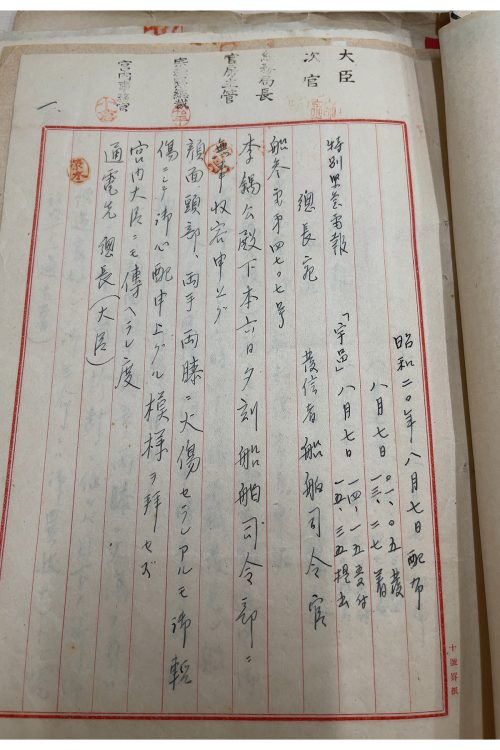 大臣
次官
総務局長
官房主管
宗秩寮総裁
宮内事務官
昭和二〇年八月七日配布
八月七日 〇一、〇五発
一三、二七着
「宇品」八月七日 一四、一五受付
一五、三五提出
特別緊急電報
總長宛 發信者船舶司令官
船参電第四七〇七号
李鍝公殿下本六日夕刻船舶司令部ニ
無事収容申上グ
顔面頭部、両手両膝ニ火傷セラレアルモ御軽
傷ニシテ御心配申上グル模様ヲ拝セズ
宮内大臣ニモ傳ヘラレ度
通電先 總長(大臣)
一、
十號罫紙